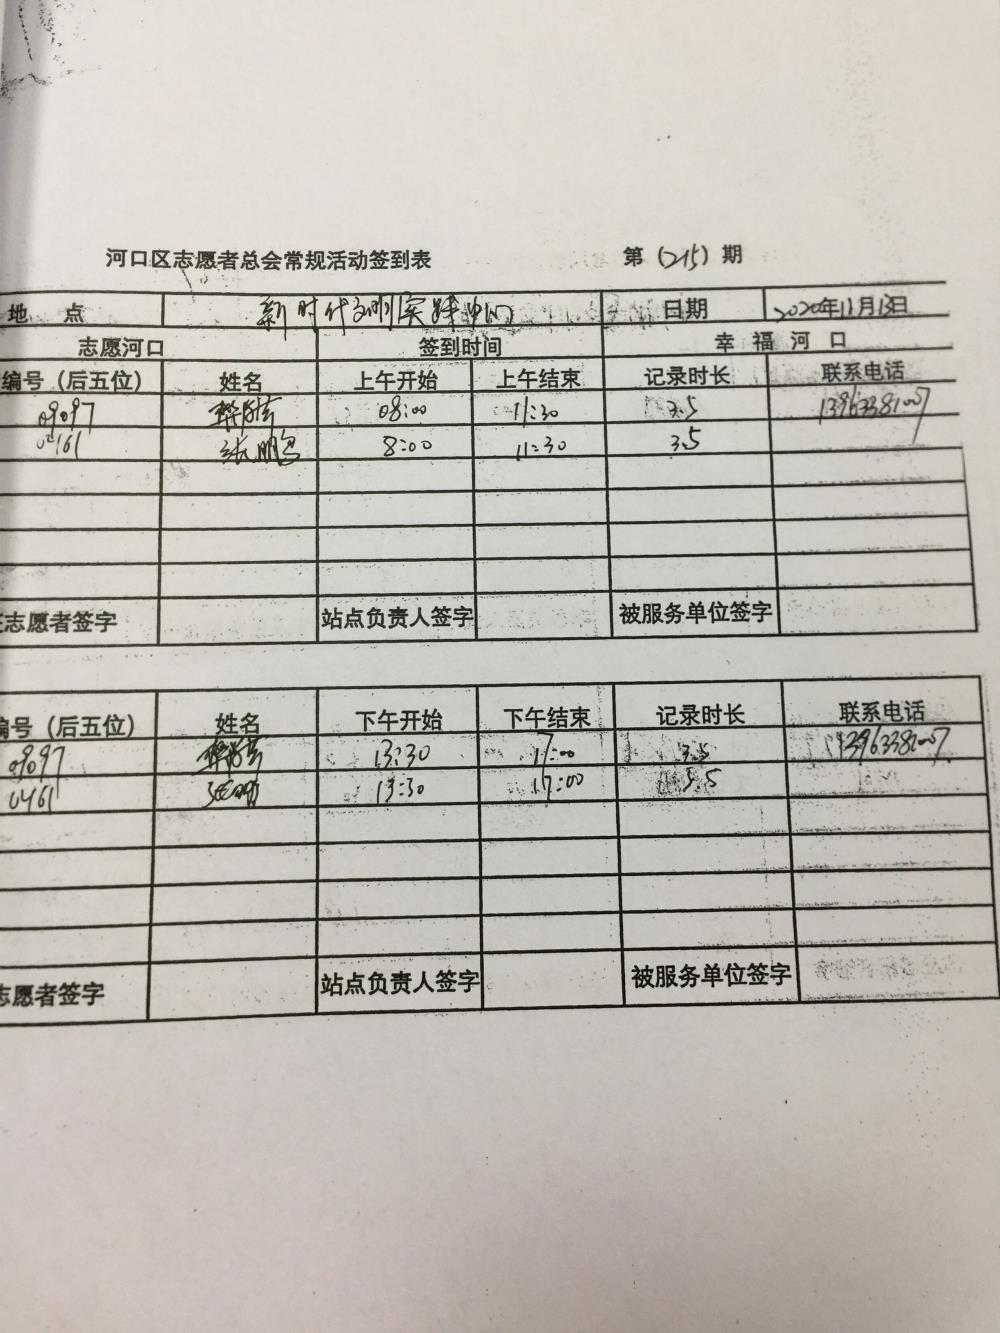 河口区志愿者总会常规活动签到表 第（215）期
地 点 新时代文明实践中心 日期 2020年11月13日
志愿河口 签到时间 幸 福 河 口
编号（后五位） 姓名 上午开始 上午结束 记录时长 联系电话
09097 08:00 11:30 3.5 13963381007
8:00 11:30 3.5
志愿者签字 站点负责人签字 被服务单位签字
编号（后五位） 姓名 下午开始 下午结束 记录时长 联系电话
09097 13:30 17:00 3.5 13963381007
0461 13:30 17:00 3.5
志愿者签字 站点负责人签字 被服务单位签字